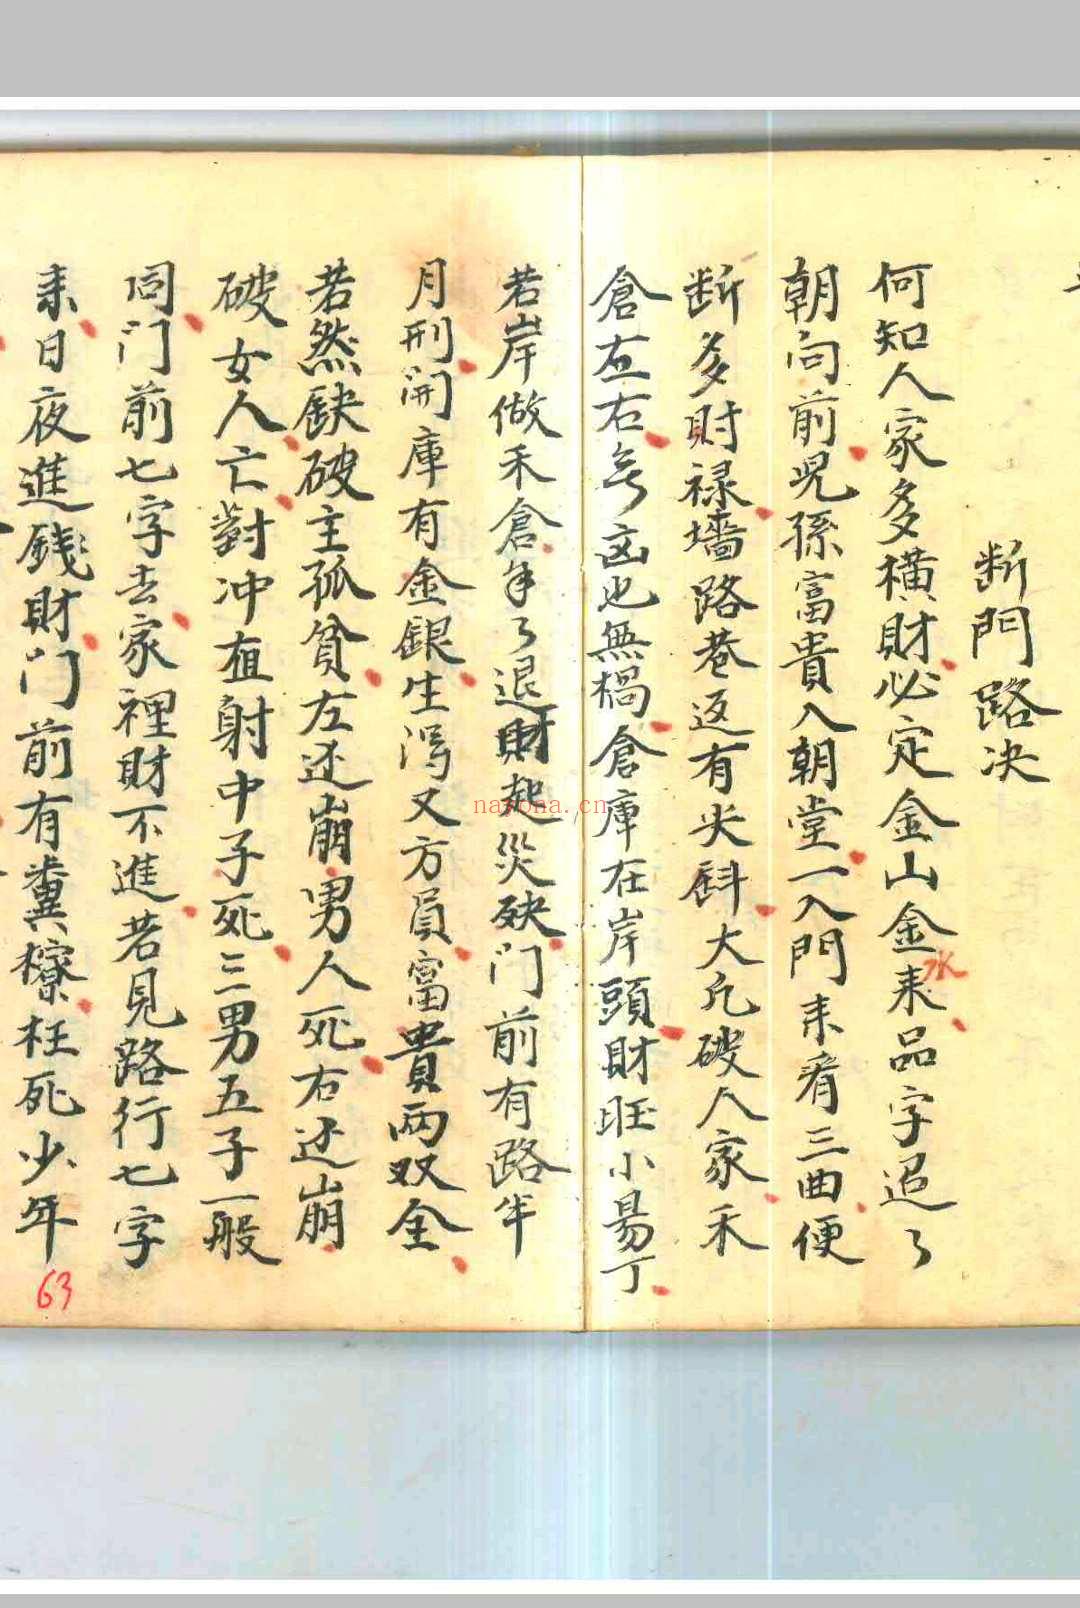 断門路决
何知人家多横財必定金山金水耒品字迢了
朝向前児孫富貴入朝堂一入門耒看三曲便
断多財禄墙路巷返有尖斜大凡破人家禾
倉在右凶也無禍倉庫在岸頭財旺小昜丁
若岸做禾倉年了退財起災缺门前有路半
月刑開庫有金銀生濁又方員富貴两双全
若然缺破主孤貧左还崩男人死右还崩
破女人亡對冲直射中子死三男五子一般
同门前七字去家裡財不進若見路行七字
耒日夜進銭財门前有糞橑枉死少年
63
nayona.cn